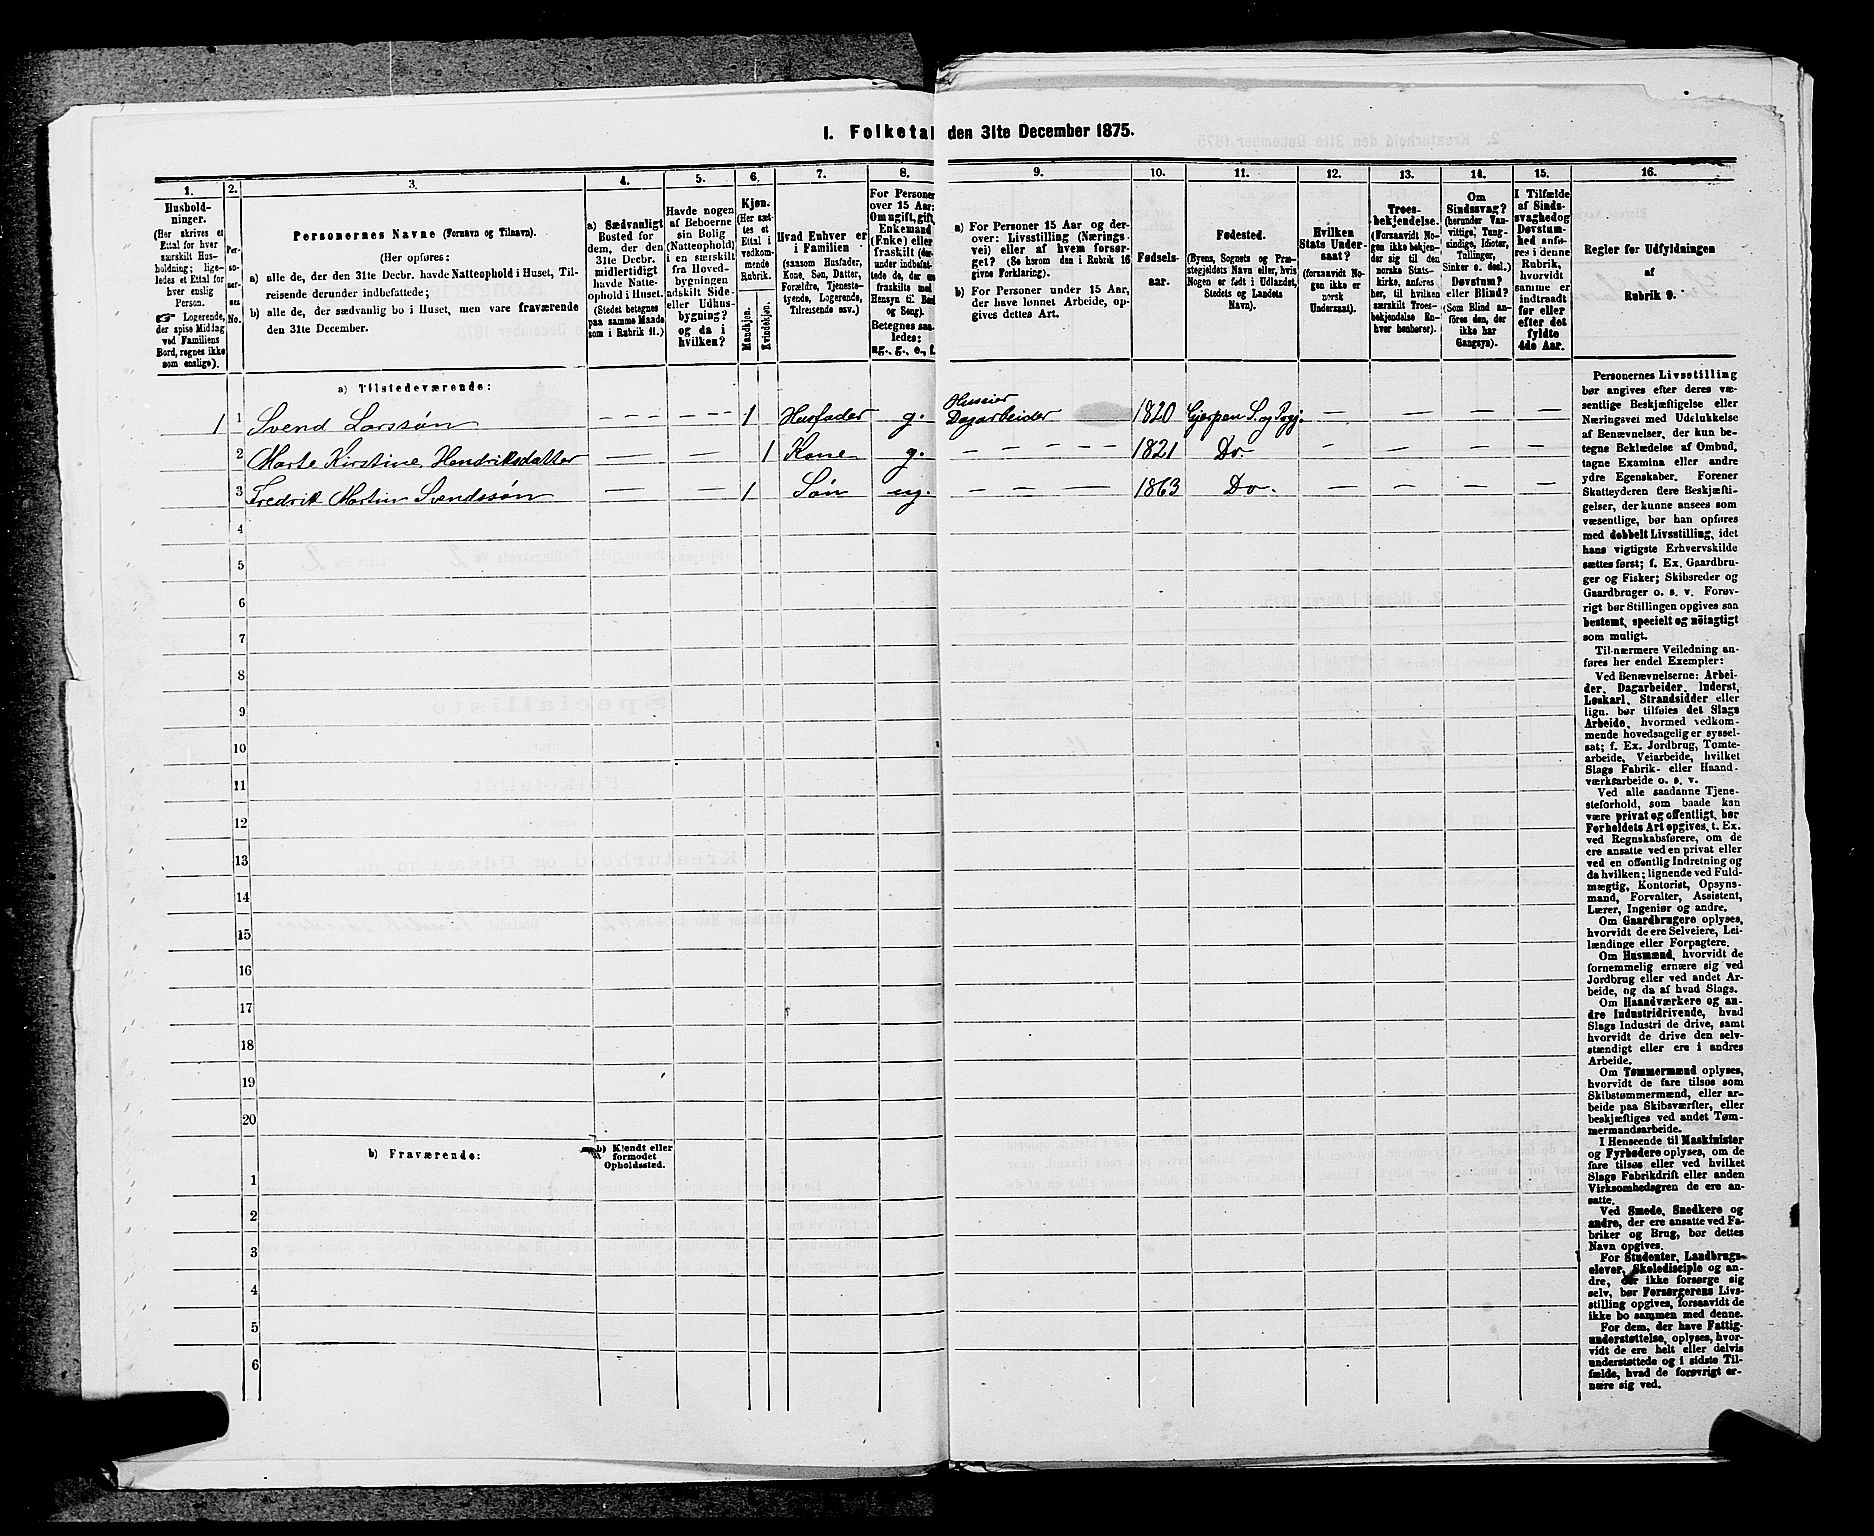 I. Folketal den 31te December 1875.
1. 2. 3. 4. 5. 6. 7. 8. 9. 10. 11. 12. 13. 14. 15. 16.
Hushold-
ninger.
(Her skrives et
Ettal for hver
særskilt Hus-
holdning; lige-
ledes et Ettal for
hver enslig
Person.
☞ Logerende,
der spise Middag
ved Familiens
Bord, regnes ikke
som enslige).
Per-
so-
ner-
nes
No.
Personernes Navne (Fornavn og Tilnavn).
(Her opføres:
a) alle de, der den 31te Decbr. havde Natteophold i Huset, Til-
reisende derunder indbefattede;
b) alle de, der sædvanlig bo i Huset, men vare fraværende
den 31te December.
a) Sædvanligt
Bosted for
dem, der den
31te Decbr.
midlertidigt
havde Natte-
ophold i Huset.
(Stedet betegnes
paa samme Maade
som i Rubrik 11.)
Havde nogen
af Beboerne
sin Bolig
(Natteophold)
i en særskilt
fra Hoved-
bygningen
adskilt Side-
eller Udhus-
bygning?
og da i
hvilken?
Kjøn.
(Her sæt-
tes et
Ettal i
vedkom-
mende
Rubrik.
Mandkjøn.
Kvindekjøn.
Hvad Enhver er
i Familien
(saasom Husfader,
Kone, Søn, Datter,
Forældre, Tjeneste-
tyende, Logerende,
Tilreisende osv.)
For Personer
over 15 Aar:
Om ugift, gift,
Enkemand
(Enke) eller
fraskilt (der-
under indbefat-
tede de, der ere
fraskilte med
Hensyn til Bord
og Seng).
Betegnes saa-
ledes:
ug., g., e., f.
a) For Personer 15 Aar og der-
over: Livsstilling (Nærings-
vei) eller af hvem forsør-
get? (Se herom den i Rubrik 16
givne Forklaring).
b) For Personer under 15 Aar,
der have lønnet Arbeide, op-
gives dettes Art.
Fødsels-
aar.
Fødested.
(Byens, Sognets og Præ-
stegjeldets Navn eller, hvis
Nogen er født i Udlandet,
Stedets og Landets
Navn).
Hvilken
Stats Under-
saat?
(forsaavidt No-
gen ikke er
norsk
Undersaat).
Troes-
bekjendelse.
(Forsaavidt No-
gen ikke bekjen-
der sig til den
norske Stats-
kirke, anføres
her, til hvilken
særskilt Troes-
bekjendelse En-
hver henhører).
Om
Sindssvag?
(herunder Van-
vittige, Tung-
sindige, Idioter,
Tullinger,
Sinker o. desl.)
Døvstum?
eller Blind?
(Som Blind an-
føres den, der
ikke har
Gangsyn).
I Tilfælde
af Sinds-
svaghed og
Døvstum-
hed anfø-
res i denne
Rubrik,
hvorvidt
samme er
indtraadt
før eller
efter det
fyldte
4de Aar.
Regler for Udfyldningen
af
Rubrik 9.
a) Tilstedeværende:
1 1 Svend Larssøn – – – – – – 1 Husfader g. Huseier
Dagarbeider 1820 Gjerpen S. og Pgj. – – – –
2 Marte Kirstine Hendriksdatter – – 1 Kone g. – – – 1821 Do – – – –
3 Fredrik Martin Svendssøn – – 1 Søn ug. – – – 1863 Do. – – – –
4
5
6
7
8
9
10
11
12
13
14
15
16
17
18
19
20
b) Fraværende:
b) Kjendt eller
formodet
Opholdssted.
1
2
3
4
5
6
Personernes Livsstilling
bør angives efter deres væ-
sentlige Beskjæftigelse eller
Næringsvei med Udelukkelse
af Benævnelser, der kun be-
tegne Beklædelse af Ombud,
tagne Examina eller andre
ydre Egenskaber. Forener
Skatteyderen flere Beskjæfti-
gelser, der kunne ansees som
væsentlige, bør han opføres
med dobbelt Livsstilling, idet
hans vigtigste Erhvervskilde
sættes først; f. Ex. Gaardbru-
ger og Fisker; Skibsreder og
Gaardbruger o. s. v. Forøv-
rigt bør Stillingen opgives saa
bestemt, specielt og nøiagtigt
som muligt.
Til nærmere Veiledning an-
føres her endel Exempler:
Ved Benævnelserne: Arbei-
der, Dagarbeider, Inderst,
Løskarl, Strandsidder eller
lign. bør tilføies det Slags
Arbeide, hvormed vedkom-
mende hovedsagelig er syssel-
sat; f. Ex. Jordbrug, Tomte-
arbeide, Veiarbeide, hvilket
Slags Fabrik- eller Haand-
værksarbeide o. s. v.
Ved alle saadanne Tjene-
steforhold, som baade kan
være privat og offentligt, bør
Forholdets Art opgives, t. Ex.
ved Regnskabsførere, om de
ere ansatte ved en privat eller
ved en offentlig Indretning og
da hvilken; lignende ved Fuld-
mægtig, Kontorist, Opsyns-
mand, Forvalter, Assistent,
Lærer, Ingeniør og andre.
Om Gaardbrugere oplyses,
hvorvidt de ere Selveiere, Lei-
lændinge eller Forpagtere.
Om Husmænd, hvorvidt de
fornemmelig ernære sig ved
Jordbrug eller ved andet Ar-
beide, og da af hvad Slags.
Om Haandværkere og an-
dre Industridrivende, hvad
Slags Industri de drive, samt
hvorvidt de drive den selv-
stændigt eller ere i andres
Arbeide.
Om Tømmermænd oplyses,
hvorvidt de fare tilsøs som
Skibstømmermænd, eller ar-
beide paa Skibsværfter, eller
beskjæftiges ved andet Tøm-
mermandsarbeide.
I Henseende til Maskinister
og Fyrbødere oplyses, om de
fare tilsøs eller ved hvilket
Slags Fabrikdrift eller anden
Virksomhedsgren de ere an-
satte.
Ved Smede, Snedkere og
andre, der ere ansatte ved Fa-
briker og Brug, bør dettes
Navn opgives.
For Studenter, Landbrugs-
elever, Skoledisciple og an-
dre, der ikke forsørge sig
selv, bør Forsørgerens Livs-
stilling opgives, forsaavidt de
ikke bo sammen med denne.
For dem, der have Fattig-
understøttelse, oplyses, hvor-
vidt de ere helt eller delvis
understøttede og i sidste Til-
fælde, hvad de forøvrigt er-
nære sig ved.